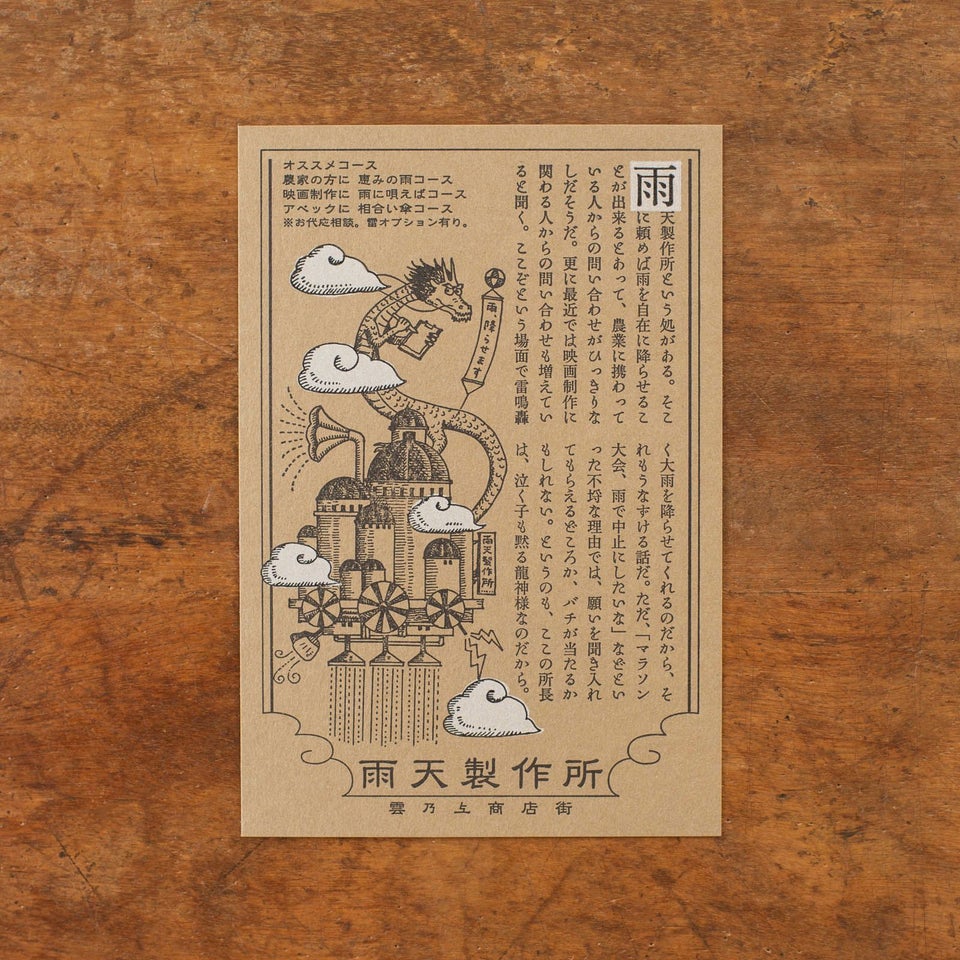 オススメコース
農家の方に 恵みの雨コース
映画制作に 雨に唄えばコース
アベックに 相合い傘コース
※お代応相談。雷オプション有り。
雨天製作所という処がある。そこ
に頼めば雨を自在に降らせるこ
とが出来るとあって、農業に携わって
いる人からの問い合わせがひっきりな
しだそうだ。更に最近では映画制作に
関わる人からの問い合わせも増えてい
ると聞く。ここぞという場面で雷鳴轟
く大雨を降らせてくれるのだから、そ
れもうなずける話だ。ただ、「マラソン
大会、雨で中止にしたいな」などとい
った不埒な理由では、願いを聞き入れ
てもらえるどころか、バチが当たるか
もしれない。というのも、ここの所長
は、泣く子も黙る龍神様なのだから。
雨、降らせます
雨天製作所
雨天製作所
雲乃上商店街